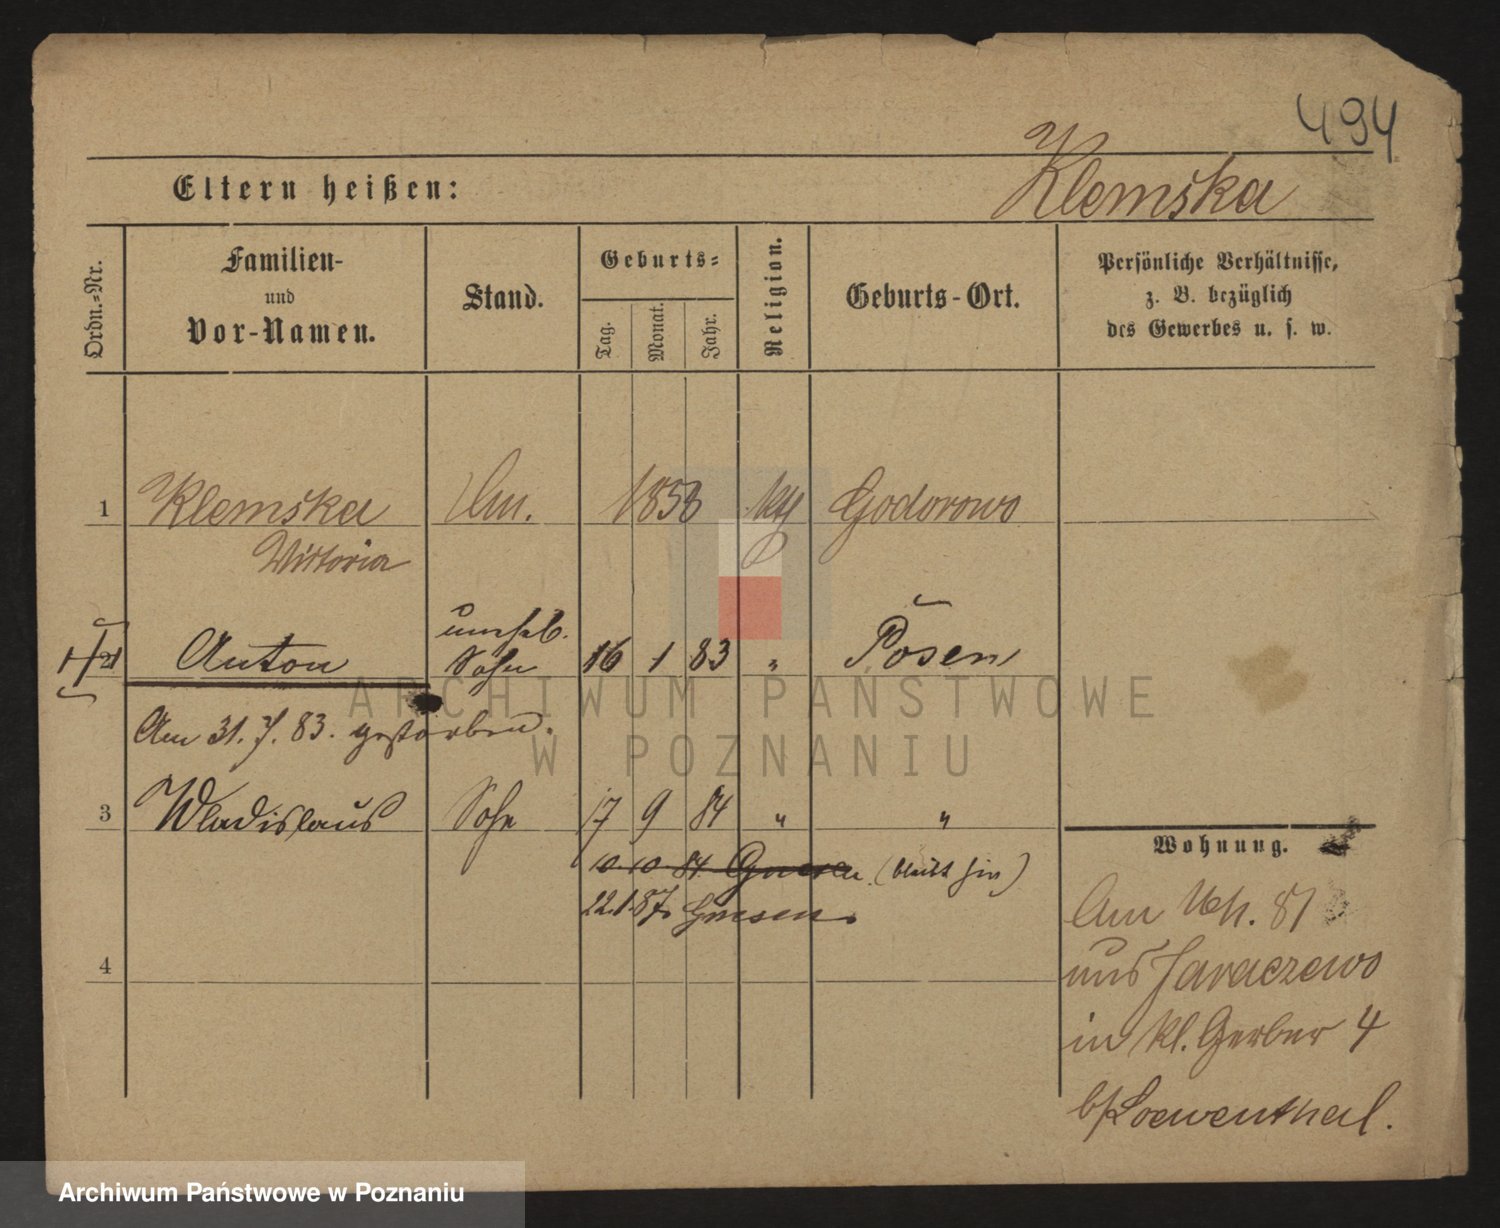 494
Klemska
Eltern heißen:
Ordn.-Nr.
Familien-
und
Vor-Namen.
Stand.
Geburts-
Tag.
Monat.
Jahr.
Religion.
Geburts-Ort.
Persönliche Verhältnisse,
z. B. bezüglich
des Gewerbes u. s. w.
1 Klemska 1858 Godorowo
Victoria
unehel.
2 Anton Sohn 16 1 83 " Posen
Am 31. 7. 83. gestorben.
3 Wladislaus Sohn 17 9 84 " "
Wohnung.
10. 10. 84 Gnesen (bleibt hier)
22. 1. 87. Gnesen.
4
Am 81
aus Jaraczewo
in Kl. Gerber 4
b/Loewenthal.
ARCHIWUM PAŃSTWOWE
W POZNANIU
Archiwum Państwowe w Poznaniu